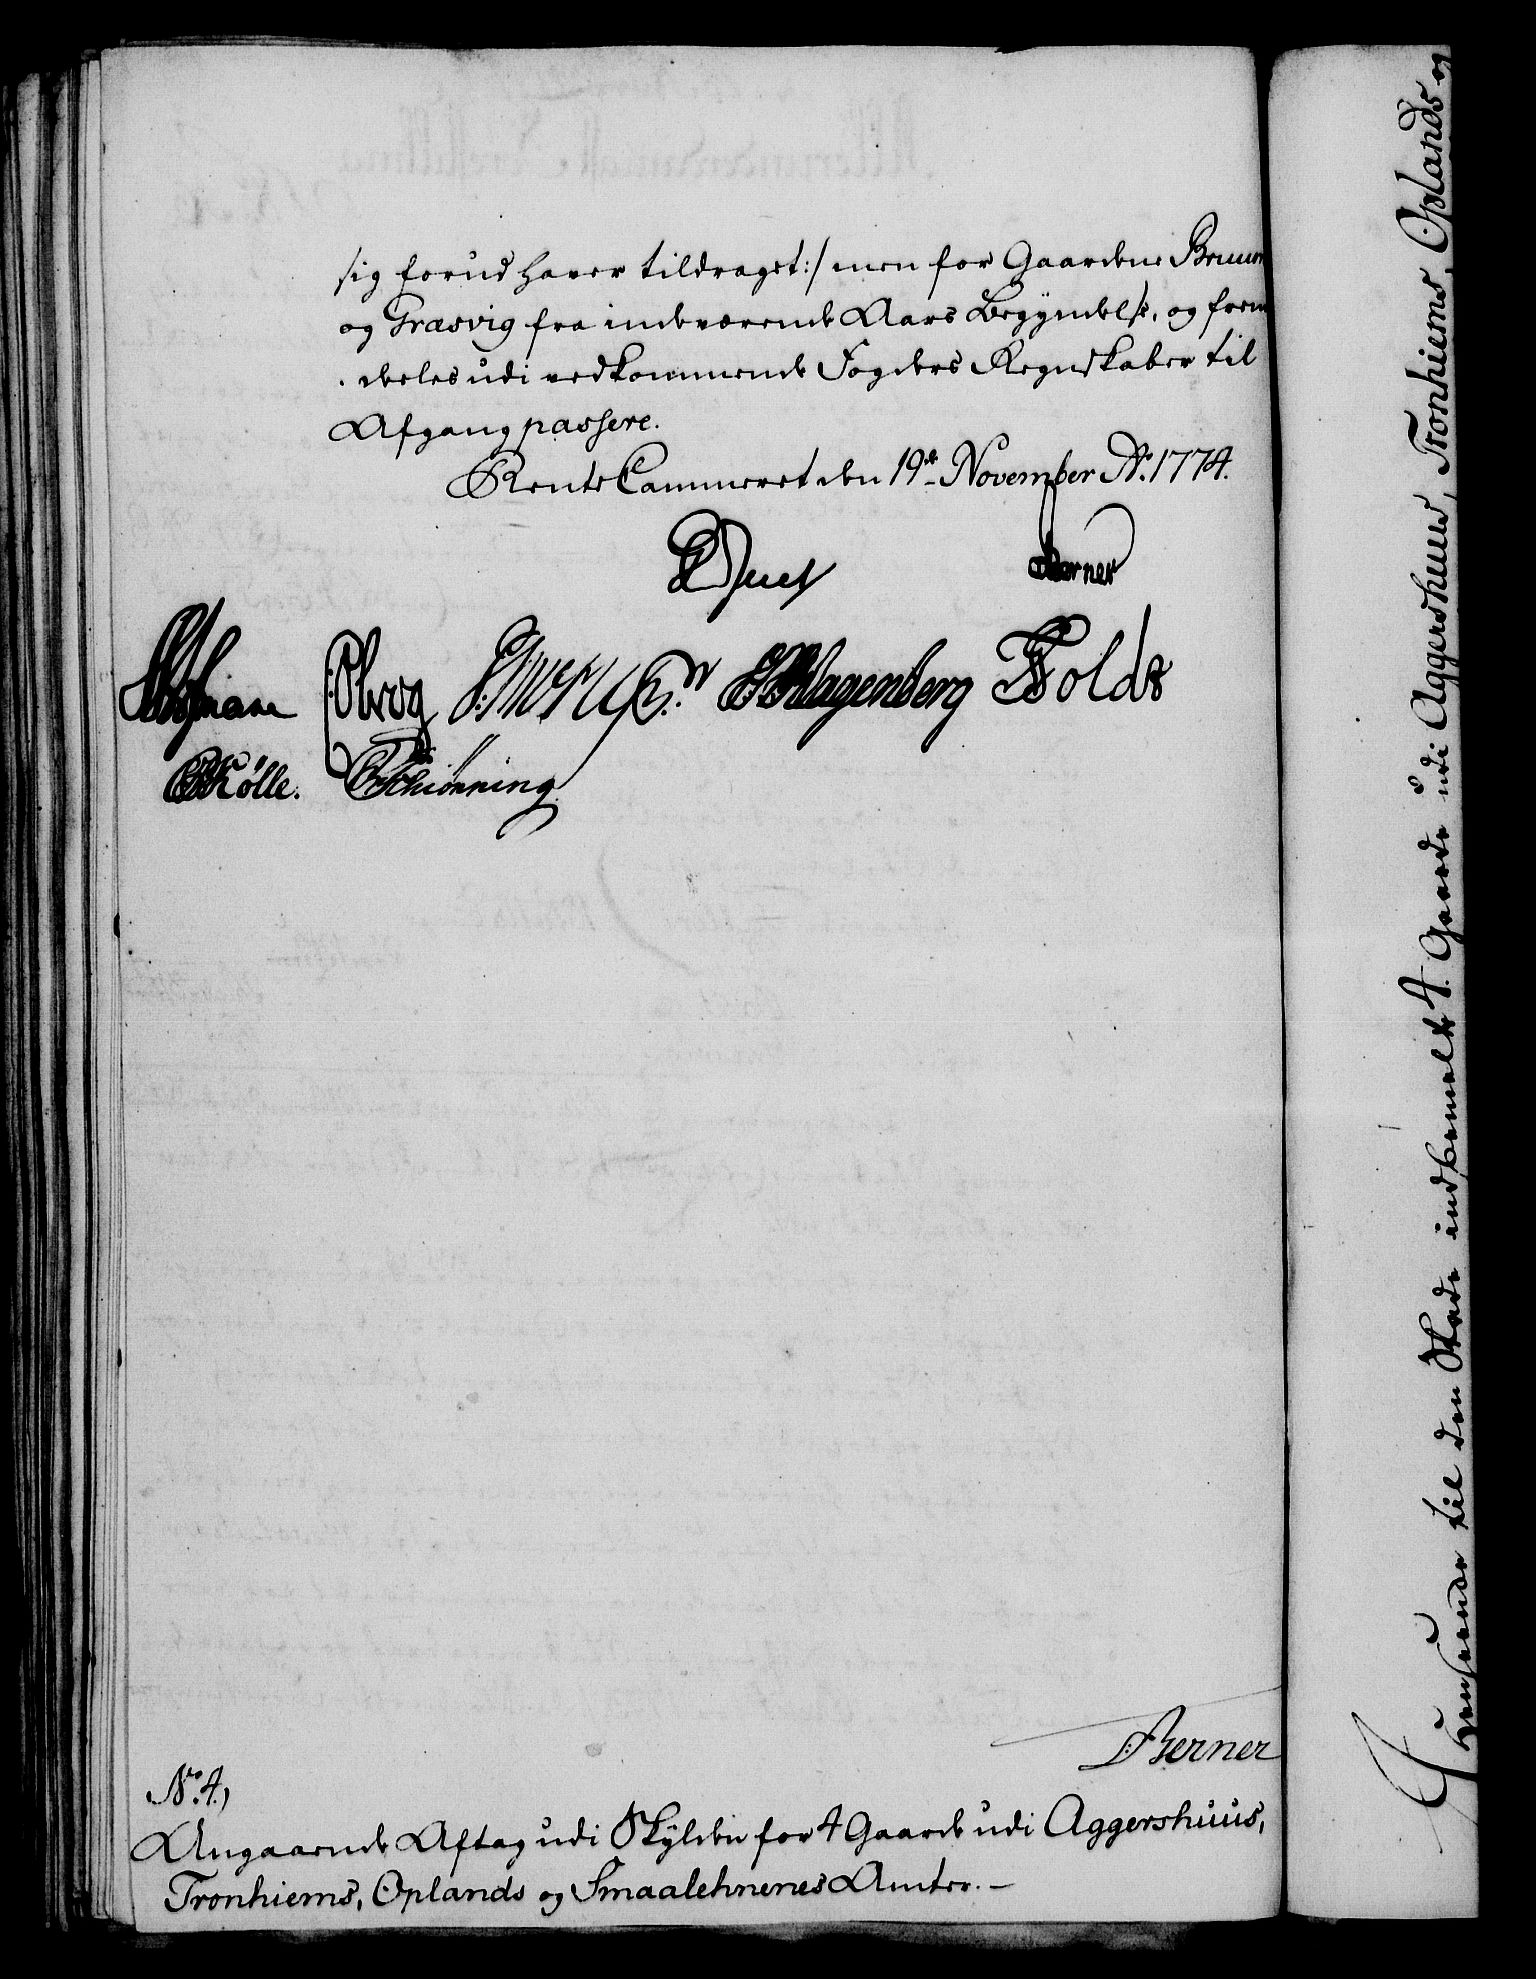 sig forud haver tildraget:/ men for Gaardene Bruun
og Græsvig fra indeværende Aars Begyndelse, og frem
deeles udi vedkommende Fogders Regnskaber til
Afgang passere.
RenteCammeret den 19de November Ao. 1774.
Juel Berner
Olrog Wagenberg Foldt
Kølle. Schiønning
Berner
No. 4,
Angaaende Aftag udi Skylden for 4 Gaarde udi Aggershuus,
Tronhiems, Oplands og Smaalehnenes Amter.
Henseende til den Skade indbemelte 4. Gaarde udi Aggershuus, Tronhiems, Oplands og